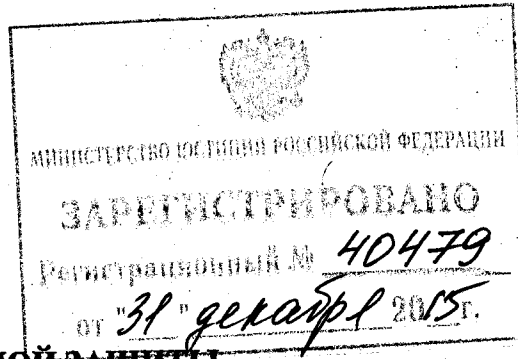 МИНИСТЕРСТВО ЮСТИЦИИ РОССИЙСКОЙ ФЕДЕРАЦИИ
ЗАРЕГИСТРИРОВАНО
Регистрационный № 40479
от "31" декабря 2015г.
ой защиты